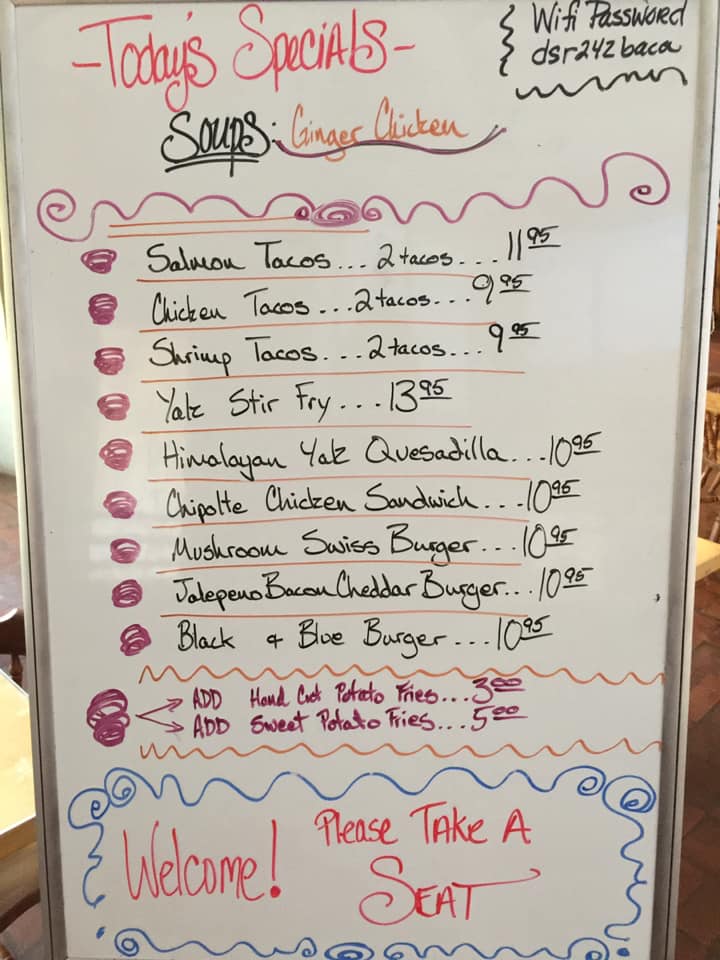 -Today's Specials-
Wifi Password
dsr242baca
Soups: Ginger Chicken
Salmon Tacos... 2 tacos... 11 95
Chicken Tacos ...2 tacos... 9 95
Shrimp Tacos...2 tacos... 9 95
Yak Stir Fry ... 13 95
Himalayan Yak Quesadilla...10 95
Chipolte Chicken Sandwich ...10 95
Mushroom Swiss Burger...10 95
Jalepeno Bacon Cheddar Burger...10 95
Black & Blue Burger ...10 95
ADD Hand Cut Potato Fries...3 00
ADD Sweet Potato Fries...5 00
Welcome! Please Take A
Seat